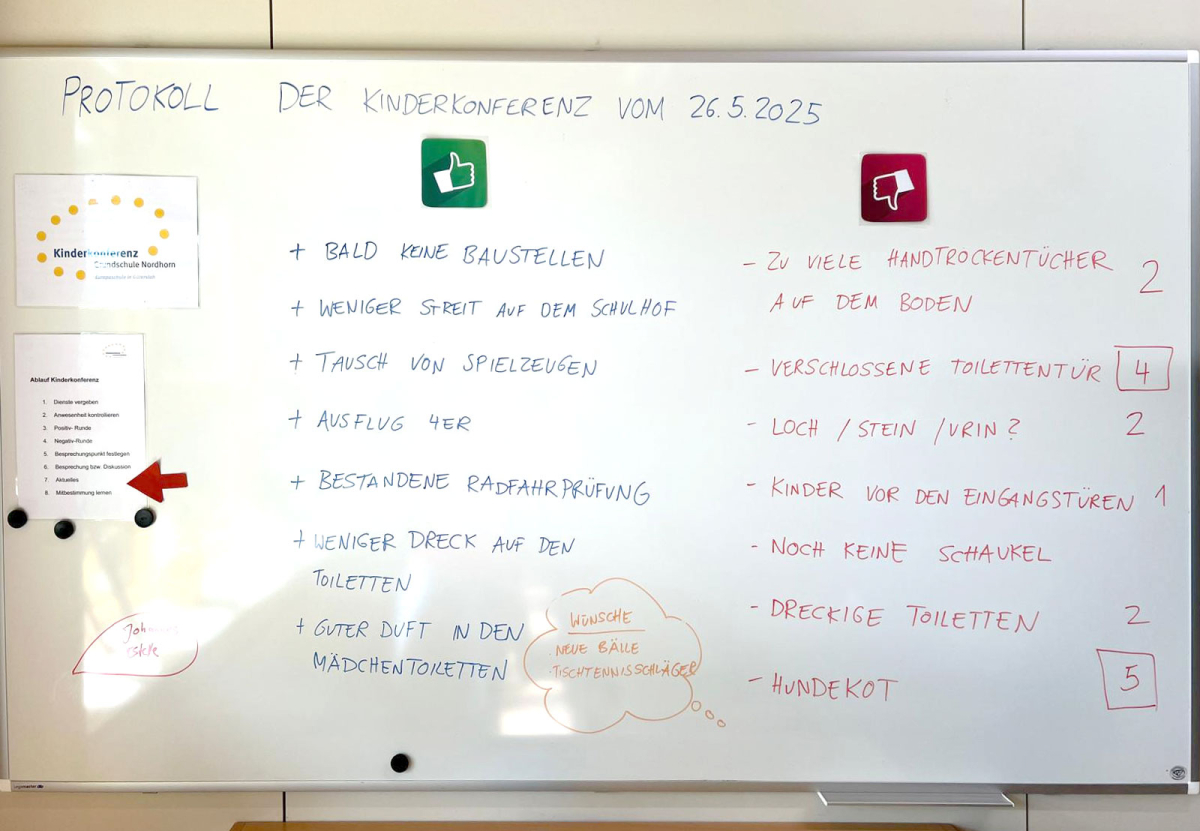 PROTOKOLL DER KINDERKONFERENZ VOM 26.5.2025
Kinderkonferenz
Grundschule Nordhorn
Ablauf Kinderkonferenz
1. Dienste vergeben
2. Anwesenheit kontrollieren
3. Positiv- Runde
4. Negativ-Runde
5. Besprechungspunkt festlegen
6. Besprechung bzw. Diskussion
7. Aktuelles
8. Mitbestimmung lernen
+ BALD KEINE BAUSTELLEN
+ WENIGER STREIT AUF DEM SCHULHOF
+ TAUSCH VON SPIELZEUGEN
+ AUSFLUG 4ER
+ BESTANDENE RADFAHRPRÜFUNG
+ WENIGER DRECK AUF DEN
TOILETTEN
+ GUTER DUFT IN DEN
MÄDCHENTOILETTEN
WÜNSCHE
· NEUE BÄLLE
· TISCHTENNISSCHLÄGER
- ZU VIELE HANDTROCKENTÜCHER
AUF DEM BODEN 2
- VERSCHLOSSENE TOILETTENTÜR 4
- LOCH / STEIN / URIN? 2
- KINDER VOR DEN EINGANGSTÜREN 1
- NOCH KEINE SCHAUKEL
- DRECKIGE TOILETTEN 2
- HUNDEKOT 5